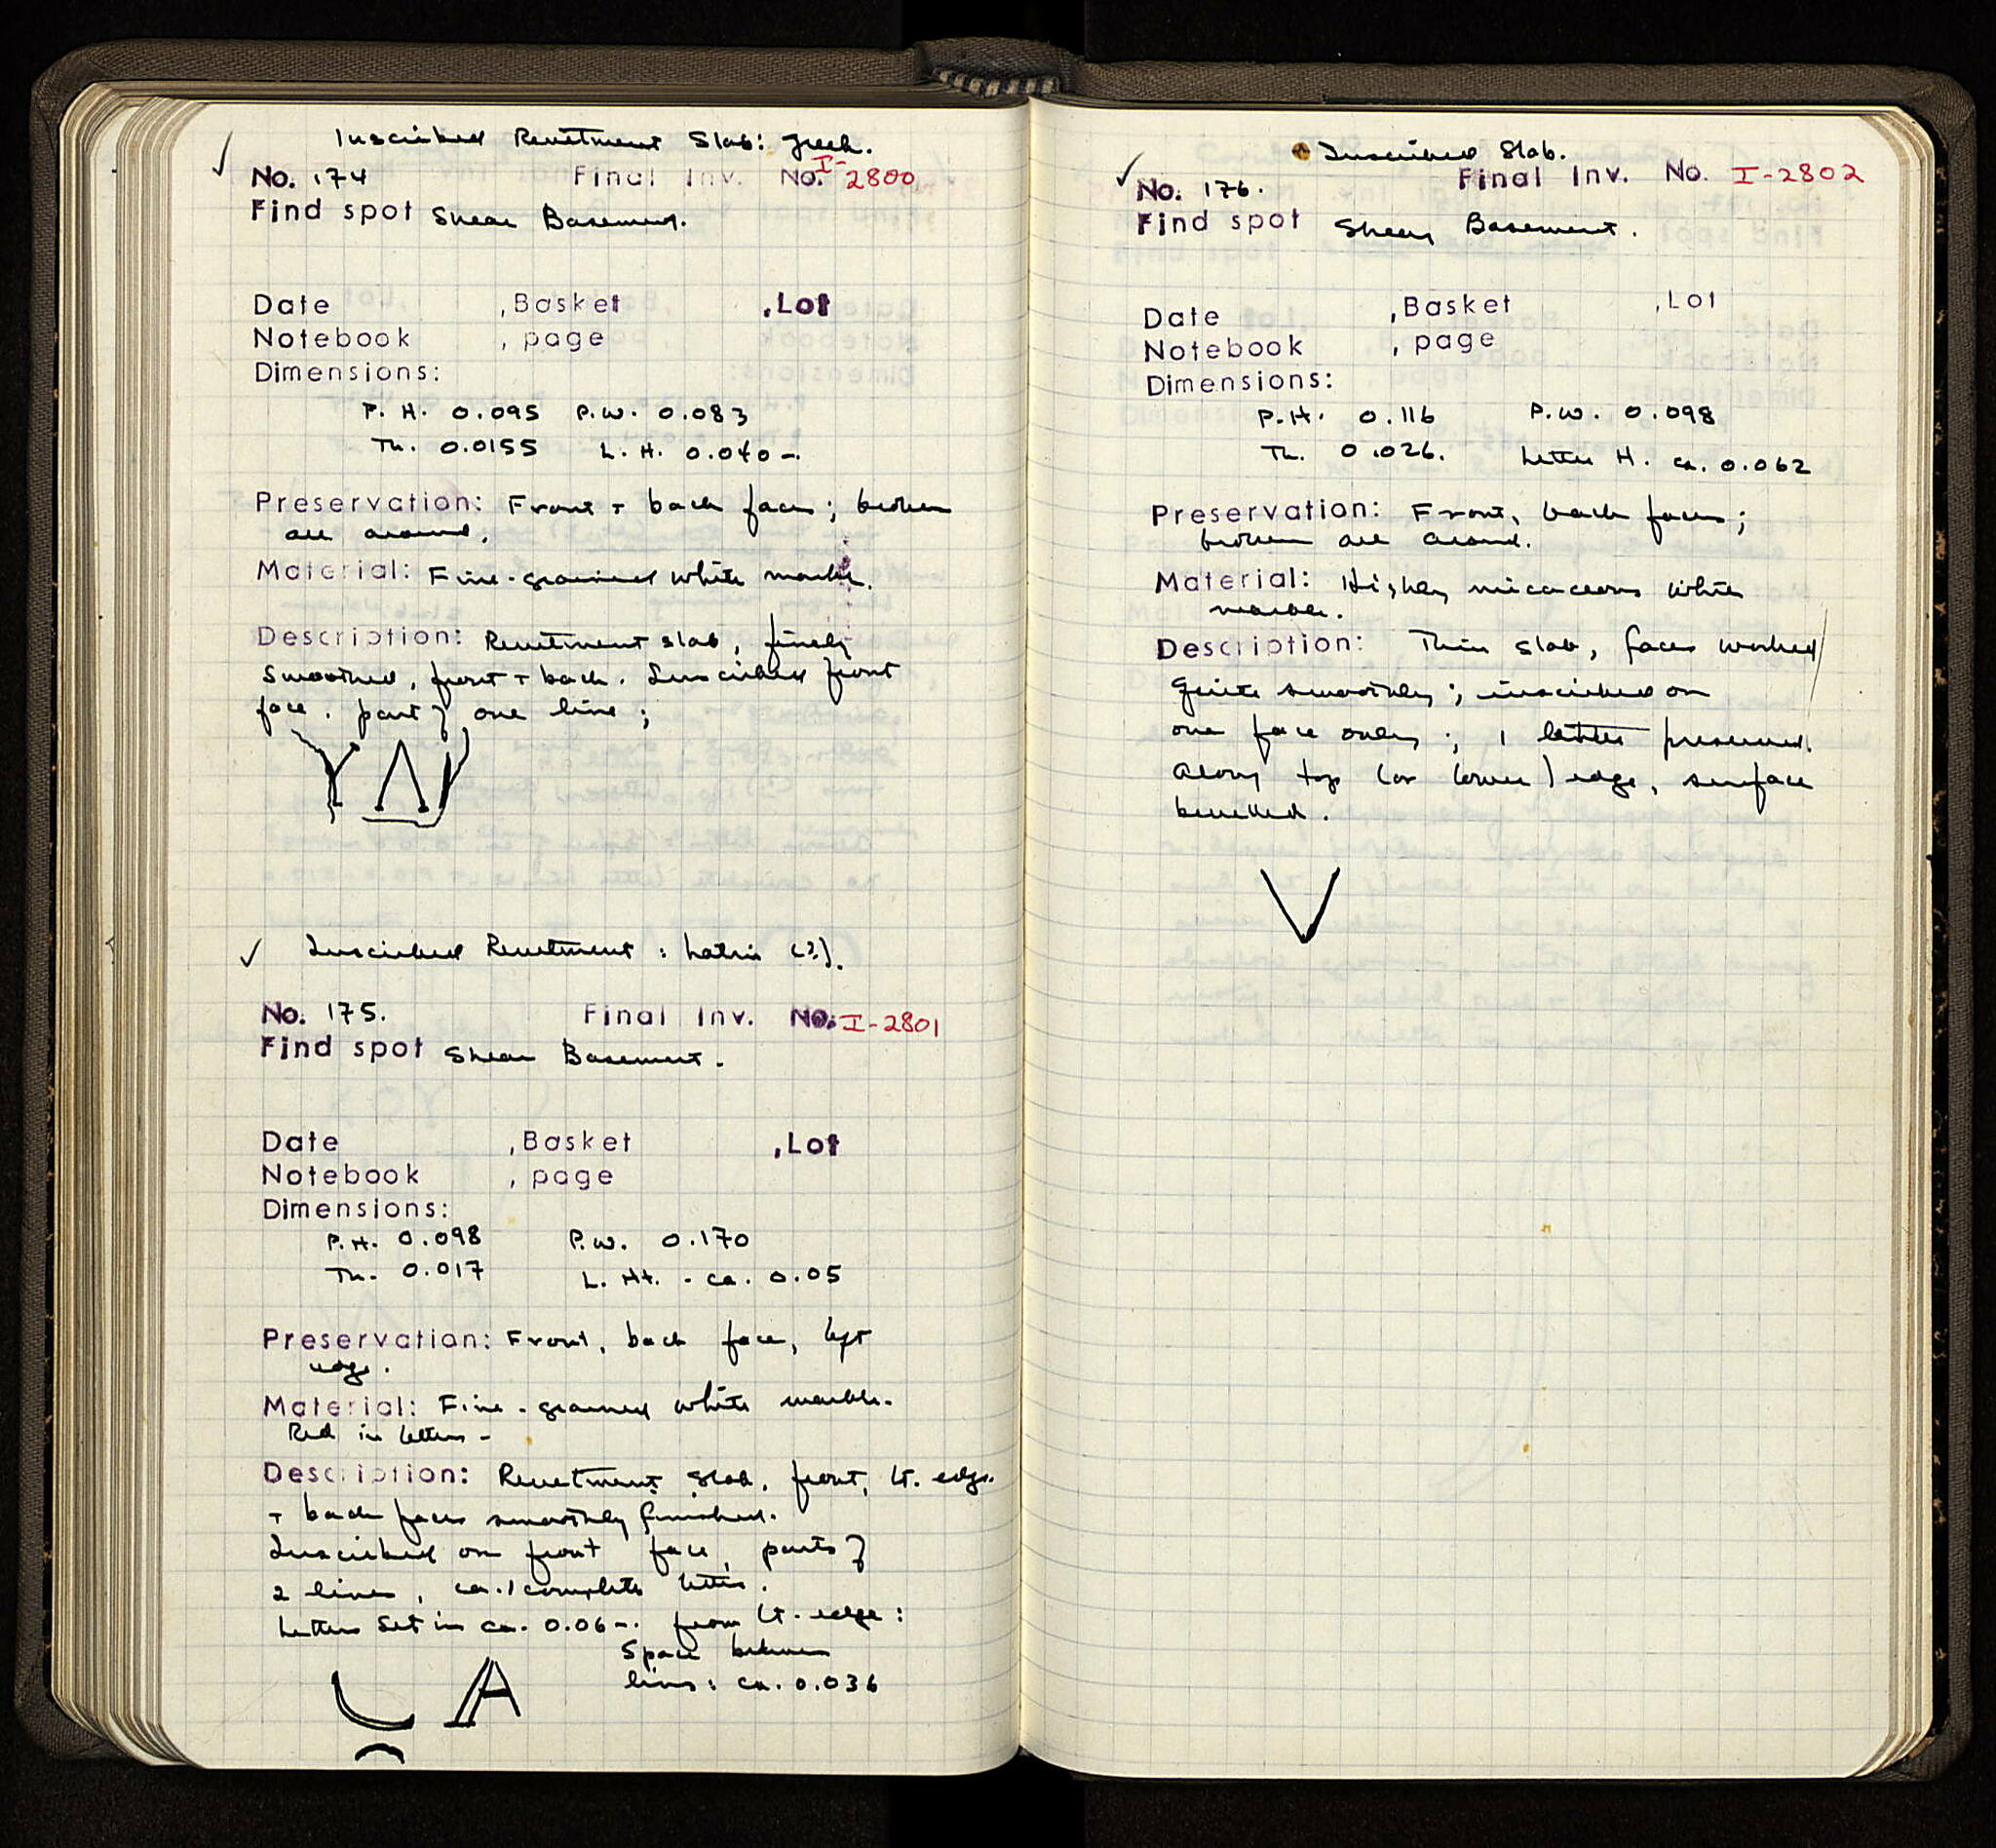 ✓ Inscribed Revetment Slab: Greek.
No. 174 Final Inv. No. I-2800
Find spot Shear Basement.
Date , Basket , Lot
Notebook , page
Dimensions:
P. H. 0.095 P.W. 0.083
Th. 0.0155 L. H. 0.040 -.
Preservation: Front + back faces; broken
all around.
Material: Fine-grained white marble.
Description: Revetment slab, finely
smoothed, front + back. Inscribed front
face. part of one line;
Υ Λ
✓ Inscribed Revetment: Latin (?).
No. 175. Final Inv. No. I-2801
Find spot Shear Basement.
Date , Basket , Lot
Notebook , page
Dimensions:
P. H. 0.098 P.W. 0.170
Th. 0.017 L. Ht. - ca. 0.05
Preservation: Front, back face, left
edge.
Material: Fine-grained white marble.
Red in letters -
Description: Revetment slab, front, lt. edge.
+ back faces smoothly finished.
Inscribed on front face, parts of
2 lines, ca. 1 complete letter.
Letters set in ca. 0.06 -. from lt. edge:
Space between
lines: ca. 0.036
A
✓ Inscribed Slab.
No. 176. Final Inv. No. I-2802
Find spot Shear Basement.
Date , Basket , Lot
Notebook , page
Dimensions:
P.H. 0.116 P.W. 0.098
Th. 0.026. Letter H. ca. 0.062
Preservation: Front, back faces;
broken all around.
Material: Highly micaceous white
marble.
Description: Thin slab, faces worked
quite smoothly; inscribed on
one face only; 1 letter preserved.
Along top (or lower) edge, surface
bevelled.
V